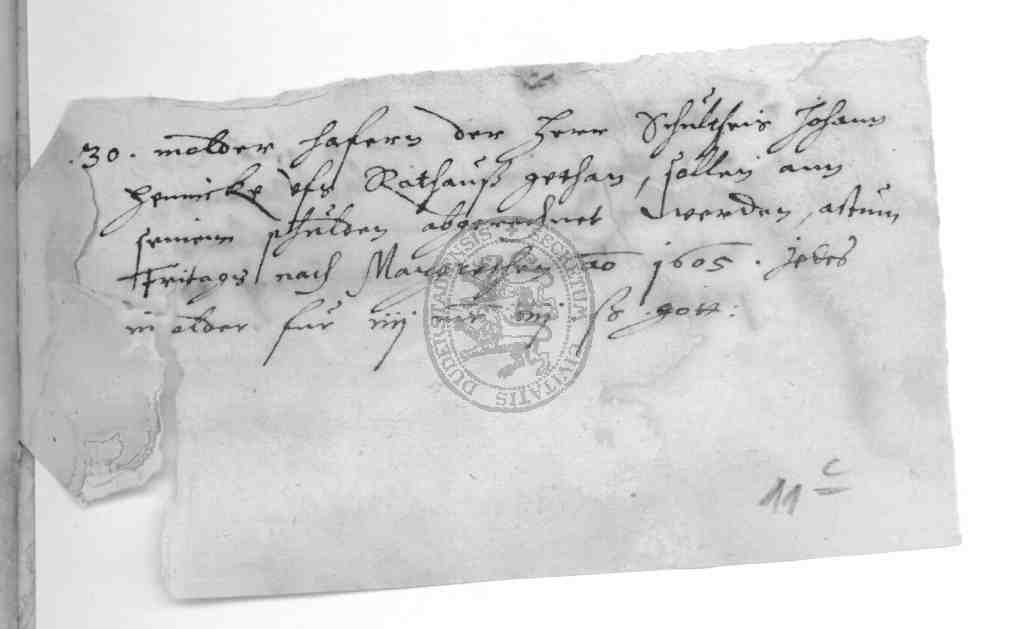 .30. molder hafern der Herr Schultheis Johann
Hennicke ufs Rathauß gethan, sollen ann
seinem schulden abgerechnet werden, actum
Fritags nach Margrethen ao 1605. Jedes
molder fur iiij mr iiij ß gött:
11 c
SECRETUM CIVITATIS DUDERSTADENSIS